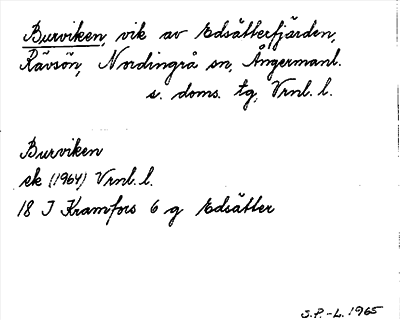 Burviken, vik av Edsätterfjärden,
Rävsön, Nordingrå sn, Ångermanl.
s. doms. tg, Vrnl. l.
Burviken
ek (1964) Vrnl. l.
18 I Kramfors 6 g Edsätter
S.P.-L. 1965